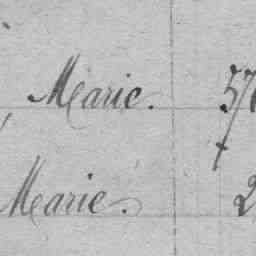 , Marie. 57
Marie. 2